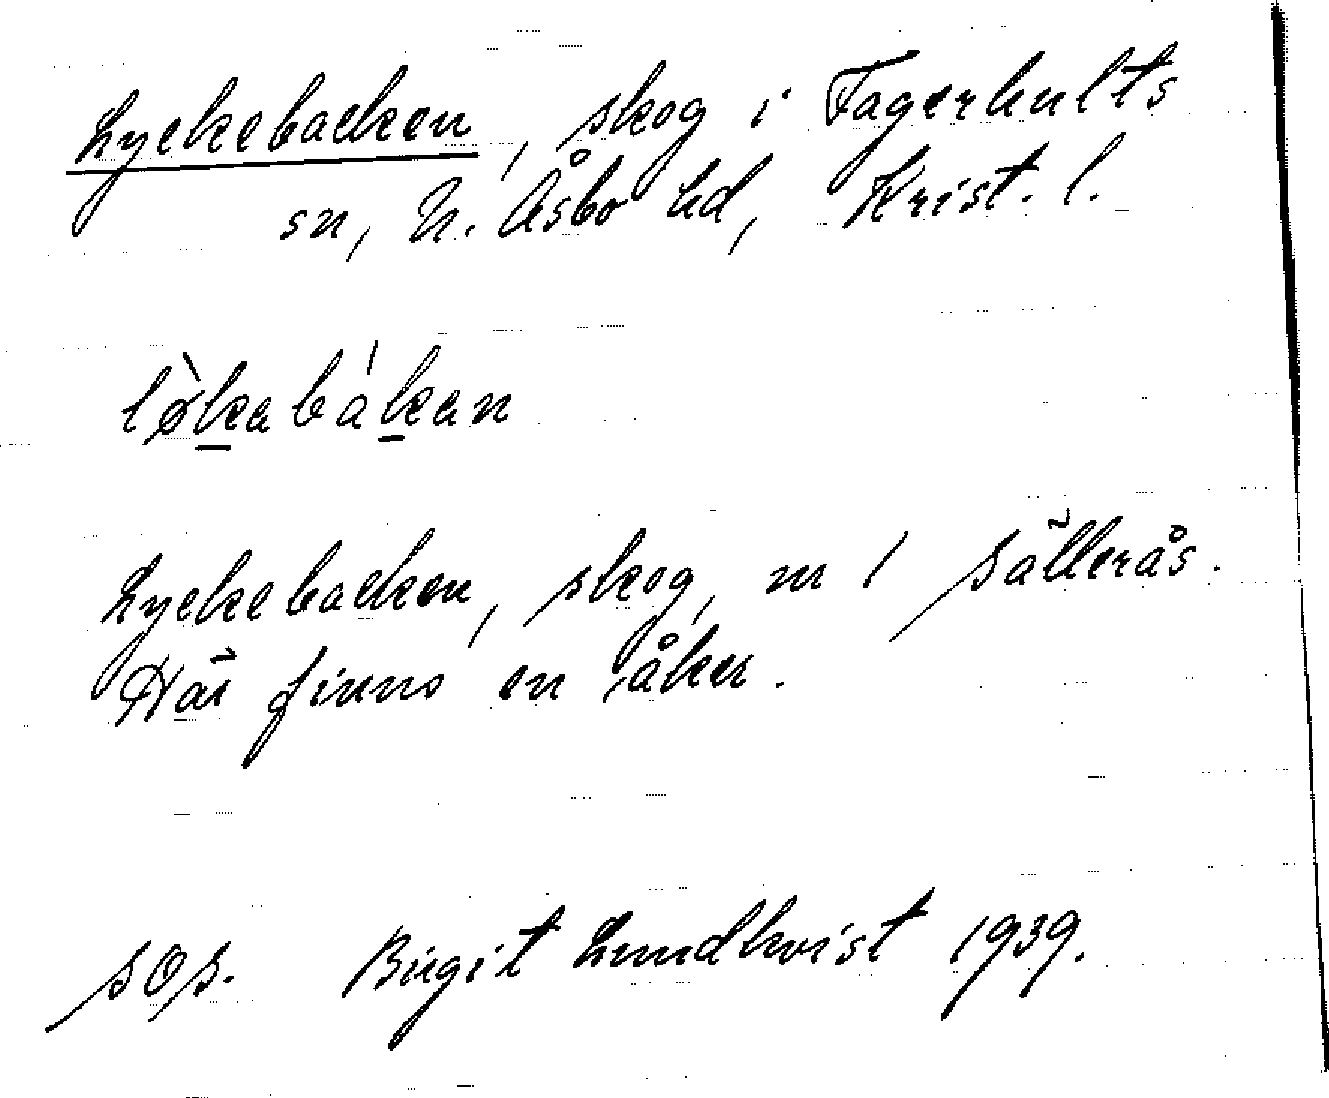 Lyckebacken, skog i Fagerhults
sn, N. Åsbo hd, Krist. l.
lø̀kabákan
Lyckebacken, skog, nr 1 Sällerås.
Här finns en åker.
SOS. Birgit Lundkvist 1939.